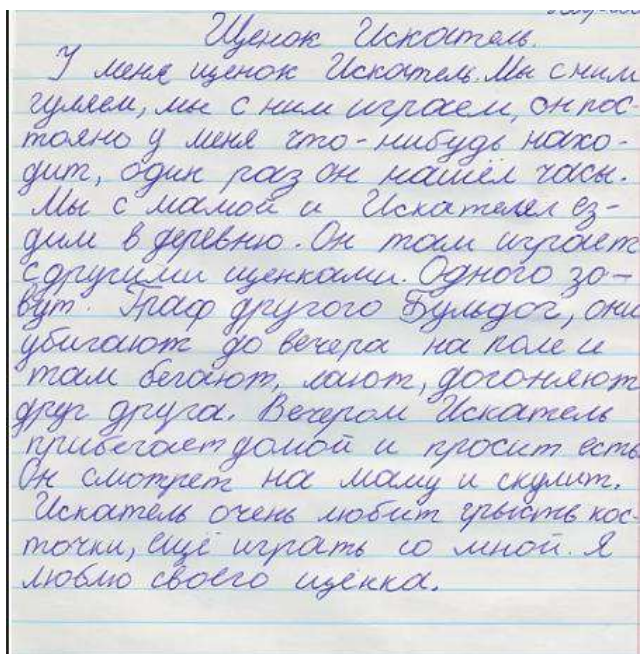 Щенок Искатель.
У меня щенок Искатель. Мы с ним
гуляем, мы с ним играем, он пос
тояно у меня что-нибудь нахо-
дит, один раз он нашёл часы.
Мы с мамой и Искателем ез-
дим в деревню. Он там играет
с другими щенками. Одного зо-
вут Граф другого Бульдог, они
убигают до вечера на поле и
там бегают, лают, догоняют
друг друга. Вечером Искатель
прибегает домой и просит есть
Он смотрет на маму и скулит.
Искатель очень любит грысть кос-
точки, ещё играть со мной. Я
люблю своего щенка.